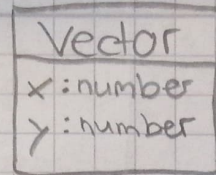 Vector
x:number
y:number